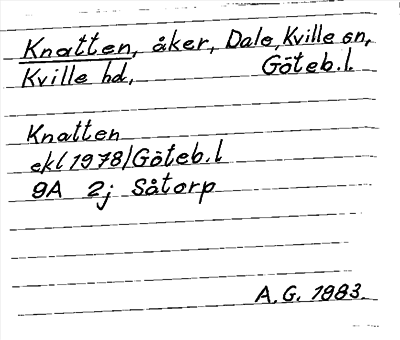 Knatten, åker, Dale, Kville sn,
Kville hd, Göteb.l.
Knatten
ekl 1978/Göteb.l
9A 2j Såtorp
A.G. 1983.